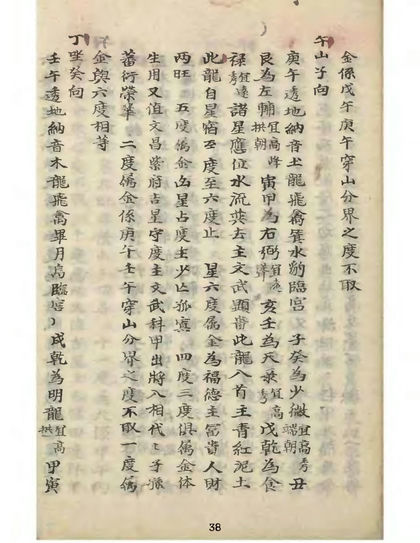 金係戊午庚午穿山分界之度不取
午山子向
庚午透地納音土龍飛禽箕水豹臨宮 子癸為少微宜高秀端朝丑
艮為左輔宜高峰拱朝寅甲為右弼宜 亥壬為天乘宜高戌乾為食
祿宜遠諸星應位水流巽去主文武顯貴此龍入首主青紅泥土
此龍自星宿 度至六度止 星六度屬金為福德主富貴人財
兩旺 五度屬金 星占度主少亡孤寡 四度三度俱屬金体
生用又值文昌紫府吉星守度主文武科甲出將入相代々子孫
蕃衍榮華 二度屬金係庚午壬午穿山分界之度不取一度屬
金與六度相等
丁坐癸向
壬午透地納音木龍飛禽畢月烏臨宮 戌乾為明龍宜高拱甲寅
38